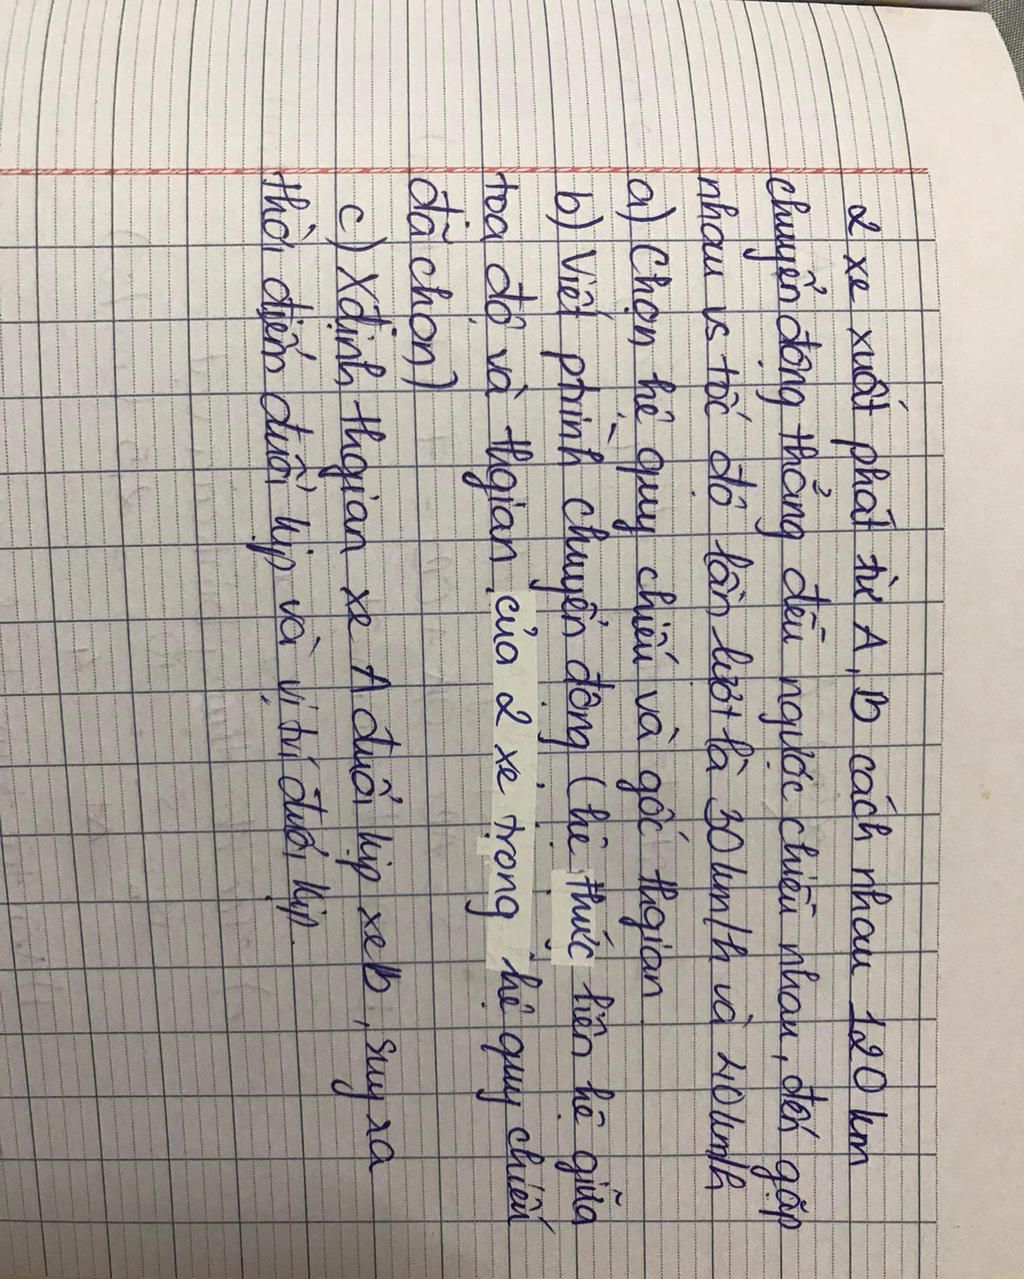 2 xe xuất phát từ A, B cách nhau 120 km
chuyển động thẳng đều ngược chiều nhau, đến gặp
nhau vs tốc độ lần lượt là 30km/h và 40km/h
a) Chọn hệ quy chiếu và gốc thgian
b) Viết ptrình chuyển động (hệ thức liên hệ giữa
toạ độ và thgian của 2 xe trong hệ quy chiếu
đã chọn)
c) Xđịnh thgian xe A đuổi kịp xe B, suy ra
thời điểm đuổi kịp và vị trí đuổi kịp.